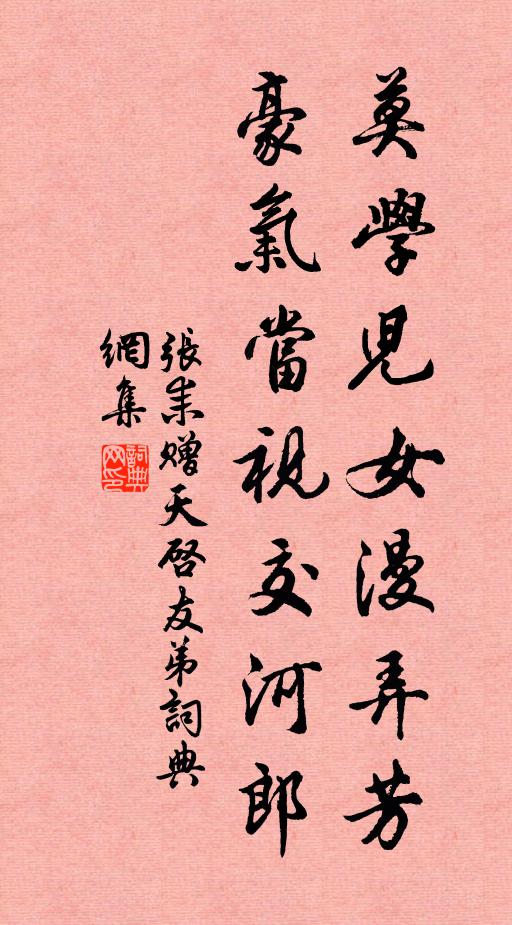 莫學兒女漫弄芳
豪氣當視交河郎
張耒贈天啓友弟詞典
網集
詞典網印